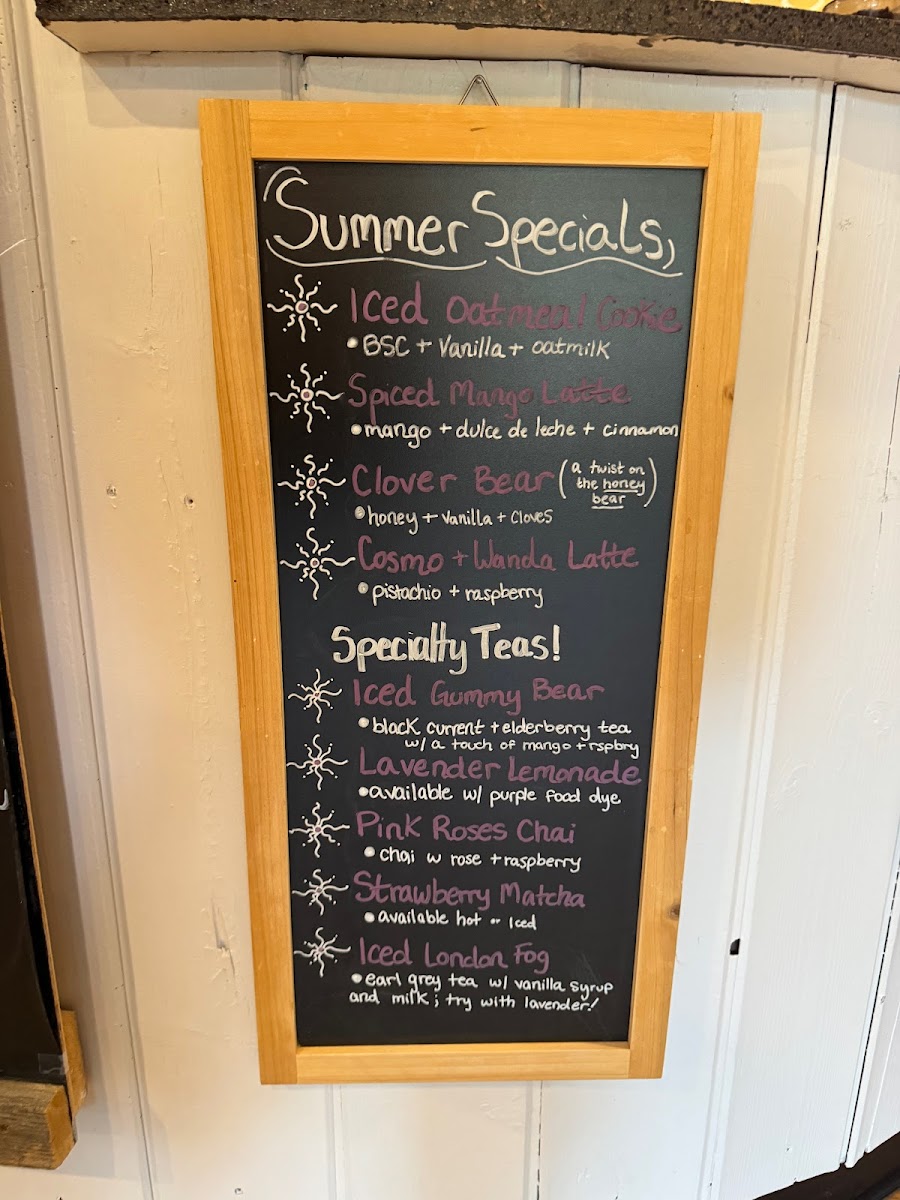 Summer Specials
Iced Oatmeal Cookie
• BSC + Vanilla + oatmilk
Spiced Mango Latte
• mango + dulce de leche + cinnamon
Clover Bear (a twist on
the honey
bear)
• honey + vanilla + cloves
Cosmo + Wanda Latte
• pistachio + raspberry
Specialty Teas!
Iced Gummy Bear
• black current + elderberry tea
w/ a touch of mango + rspbry
Lavender Lemonade
• available w/ purple food dye
Pink Roses Chai
• chai w rose + raspberry
Strawberry Matcha
• available hot or Iced
Iced London Fog
• earl grey tea w/ vanilla syrup
and milk; try with lavender!